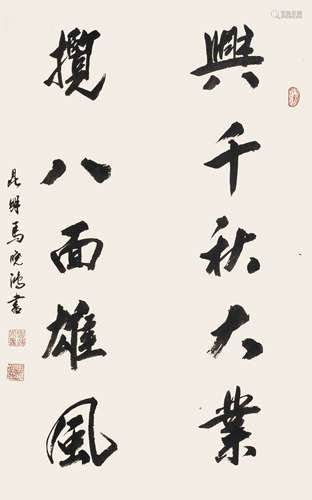 興千秋大業
攬八面雄風
昆明馬曉鴻書